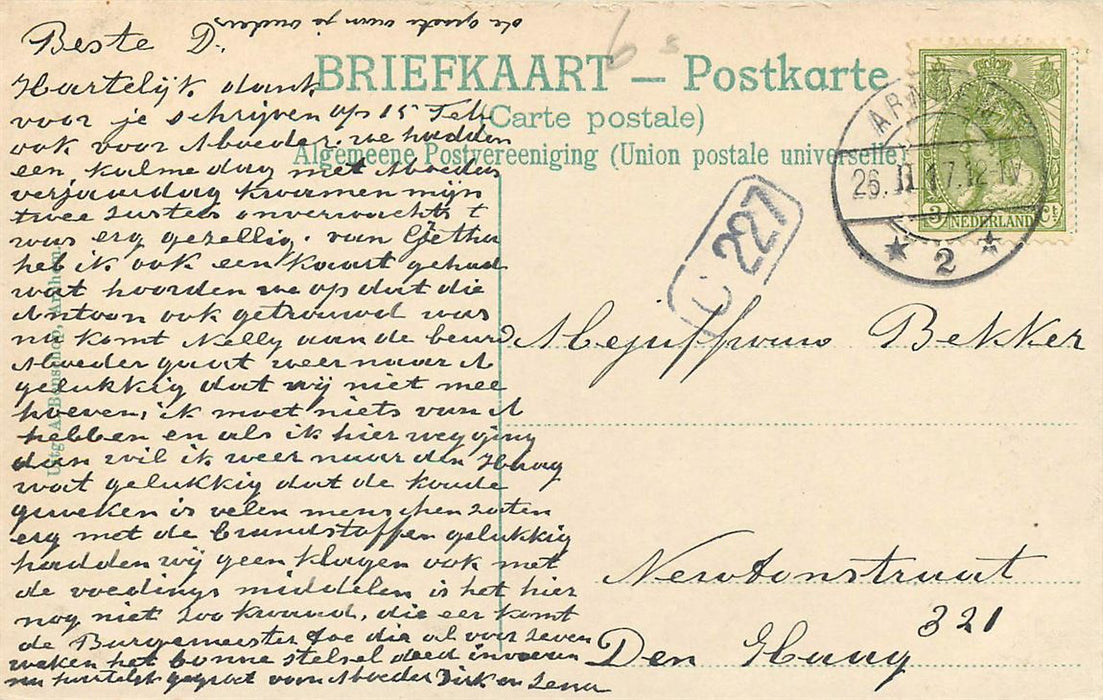 de groete aan je ouders
Beste D.
Hartelijk dank
voor je schrijven op 15 Feb
ook voor Moeder. we hadden
een kalme dag met Moeders
verjaardag kwamen mijn
twee zusters onverwachts t
was erg gezellig. van
heb ik ook een kaart gehad
wat hoorden we op dat die
Antoon ook getrouwd was
nu komt Nelly aan de beurd
Moeder gaat weer naar A
gelukkig dat wij niet mee
hoeven, ik moet niets van A
hebben en als ik hier weg ging
dan wil ik weer naar den Haag
wat gelukkig dat de koude
geweken is velen menschen zaten
erg met de brandstoffen gelukkig
hadden wij geen klagen ook met
de voedings middelen is het hier
nog niet zoo kwaad, die eer komt
de Burgemeester toe die al voor zeven
weken het bonne stelsel deed invoeren
nu hartelijk gegroet van Moeder Dirk en Lena
6 s
BRIEFKAART — Postkarte
(Carte postale)
Algemeene Postvereeniging (Union postale universelle)
ARNHEM
26.II.17.12-1V
2
3 NEDERLAND Ct
C 221
Mejuffrouw Bekker
Newtonstraat
321
Den Haag
Uitg. A. Benschop, Arnhem.